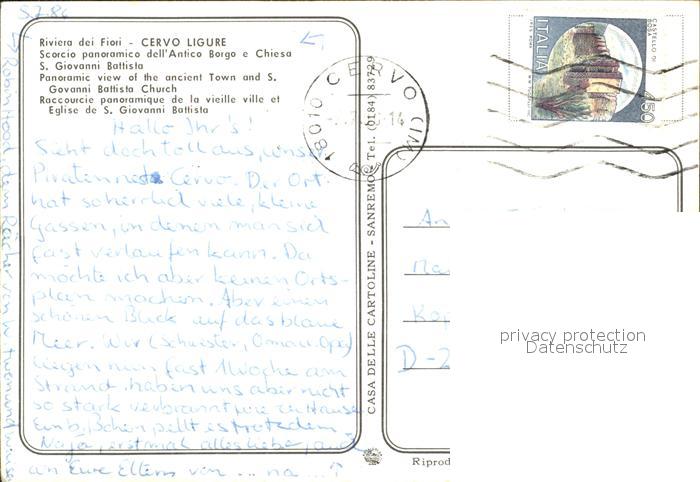 5.7.86
Riviera dei Fiori - CERVO LIGURE
Scorcio panoramico dell'Antico Borgo e Chiesa
S. Giovanni Battista
Panoramic view of the ancient Town and S.
Govanni Battista Church
Raccourcie panoramique de la vieille ville et
Eglise de S. Giovanni Battista
Hallo Ihr's!
Sieht doch toll aus, unser
Piratennest Cervo. Der Ort
hat so herrlich viele, kleine
Gassen, in denen man sich
fast verlaufen kann. Da
möchte ich aber keinen Orts-
plan machen. Aber einen
schönen Blick auf das blaue
Meer. Wir (Schwester, Oma u. Opa)
liegen nun fast 1 Woche am
Strand, haben uns aber nicht
so stark verbrannt wie zu Hause.
Ein bißchen pellt es trotzdem.
Naja, erstmal alles liebe, auch
an Eure Eltern von ... na ... ↑
→ Robin Hood, dem Rächer von
CASA DELLE CARTOLINE - SANREMO - Tel. (0184) 83729
18010 CERVO (IM)
ITALIA
450
CASTELLO DI
An
D-2
privacy protection
Datenschutz
Riprod